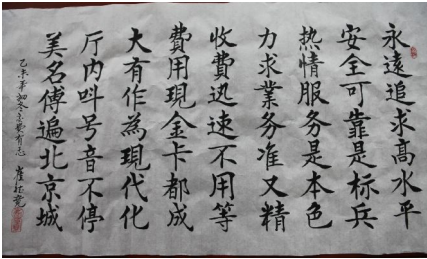 永遠追求高水平
安全可靠是标兵
热情服务是本色
力求業务准又精
收費迅速不用等
費用現金卡都成
大有作為現代化
厅内叫号音不停
美名傅遍北京城